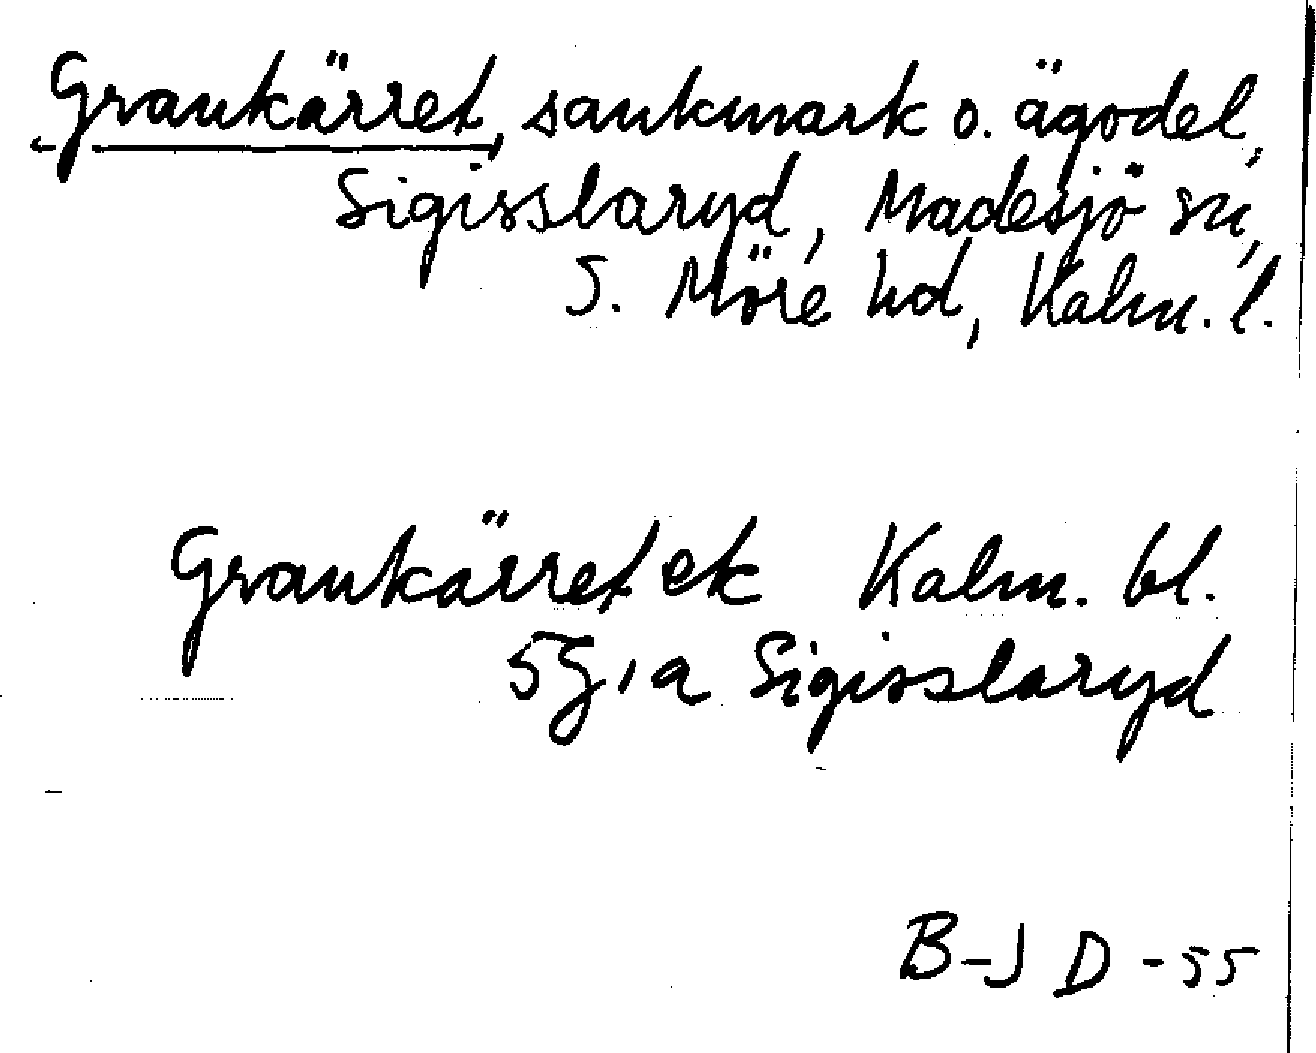 Grankärret, sankmark o. ägodel,
Sigisslaryd, Madesjö sn,
S. Möre hd, Kalm. l.
Grankärret ek Kalm. bl.
5g,a Sigisslaryd
B-J D -55